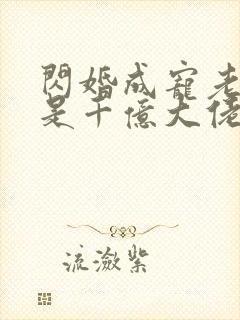 閃婚成寵老
是千億大佬
流瀲紫